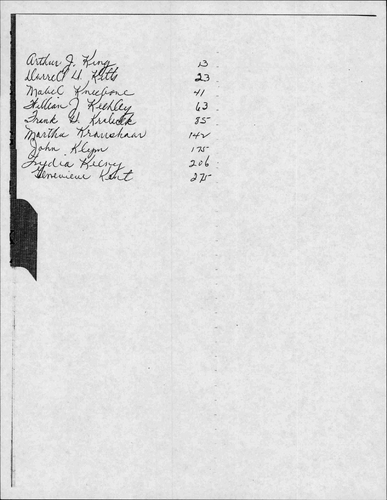 Arthur J. King 13
Darrel H Kitts 23
Mabel Kneebone 41
William J Keehley 63
Frank G. 85
Martha Kranshaar 142
John Klym 175
Lydia Keeny 206
Genevieve Kent 275